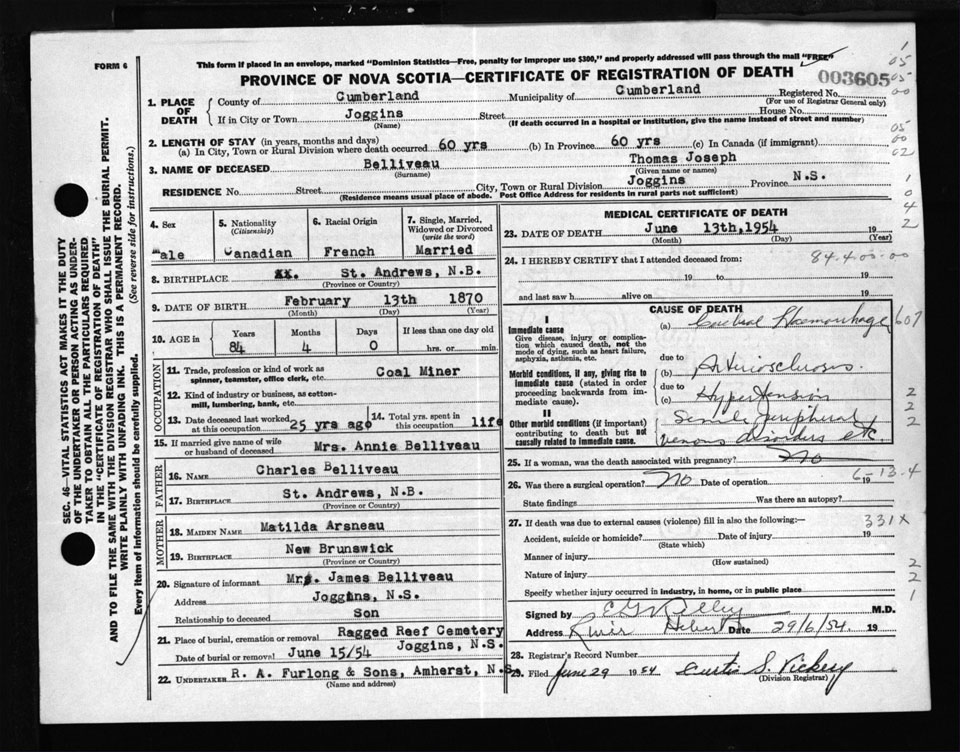 FORM 6
This form if placed in an envelope, marked "Dominion Statistics—Free, penalty for improper use $300," and properly addressed will pass through the mail "FREE"
PROVINCE OF NOVA SCOTIA—CERTIFICATE OF REGISTRATION OF DEATH
003605
1. PLACE OF DEATH
County of Cumberland Municipality of Cumberland Registered No.
(For use of Registrar General only)
If in City or Town Joggins Street House No.
(Name) (If death occurred in a hospital or institution, give the name instead of street and number)
2. LENGTH OF STAY (in years, months and days)
(a) In City, Town or Rural Division where death occurred 60 yrs (b) In Province 60 yrs (c) In Canada (if immigrant)
3. NAME OF DECEASED Belliveau Thomas Joseph
(Surname) (Given name or names)
RESIDENCE No. Street City, Town or Rural Division Joggins Province N.S.
(Residence means usual place of abode. Post Office Address for residents in rural parts not sufficient)
4. Sex
ale
5. Nationality
(Citizenship)
Canadian
6. Racial Origin
French
7. Single, Married, Widowed or Divorced
(write the word)
Married
8. BIRTHPLACE St. Andrews, N.B.
(Province or Country)
9. DATE OF BIRTH February 13th 1870
(Month) (Day) (Year)
10. AGE in
Years Months Days If less than one day old
84 4 0 hrs. or min.
OCCUPATION
11. Trade, profession or kind of work as spinner, teamster, office clerk, etc. Coal Miner
12. Kind of industry or business, as cotton-mill, lumbering, bank, etc.
13. Date deceased last worked at this occupation 25 yrs ago
14. Total yrs. spent in this occupation life
15. If married give name of wife or husband of deceased Mrs. Annie Belliveau
FATHER
16. NAME Charles Belliveau
17. BIRTHPLACE St. Andrews, N.B.
(Province or Country)
MOTHER
18. MAIDEN NAME Matilda Arsneau
19. BIRTHPLACE New Brunswick
(Province or Country)
20. Signature of informant Mr. James Belliveau
Address Joggins, N.S.
Relationship to deceased Son
21. Place of burial, cremation or removal Ragged Reef Cemetery
Joggins, N.S.
Date of burial or removal June 15/54
22. UNDERTAKER R. A. Furlong & Sons, Amherst, N.S.
(Name and address)
MEDICAL CERTIFICATE OF DEATH
23. DATE OF DEATH June 13th, 1954 19
(Month) (Day) (Year)
24. I HEREBY CERTIFY that I attended deceased from:
84.4 00.00
19 to 19
and last saw h alive on 19
CAUSE OF DEATH
I
Immediate cause
Give disease, injury or complication which caused death, not the mode of dying, such as heart failure, asphyxia, asthenia, etc.
(a) Cerebral Haemorrhage
due to
Morbid conditions, if any, giving rise to immediate cause (stated in order proceeding backwards from immediate cause).
(b) Arteriosclerosis.
due to
(c) Hypertension
II
Other morbid conditions (if important) contributing to death but not causally related to immediate cause.
Senile, peripheral
venous disorders etc.
25. If a woman, was the death associated with pregnancy? No
26. Was there a surgical operation? No Date of operation 19
6-13-4
State findings Was there an autopsy?
27. If death was due to external causes (violence) fill in also the following:—
331X
Accident, suicide or homicide? Date of injury 19
(State which)
Manner of injury
(How sustained)
Nature of injury
Specify whether injury occurred in industry, in home, or in public place
Signed by M.D.
Address River Hebert Date 29/6/54. 19
28. Registrar's Record Number
29. Filed June 29 1954 Curtis S. Vickery
(Division Registrar)
SEC. 46—VITAL STATISTICS ACT MAKES IT THE DUTY
OF THE UNDERTAKER OR PERSON ACTING AS UNDER-
TAKER TO OBTAIN ALL THE PARTICULARS REQUIRED
IN THE "CERTIFICATE OF REGISTRATION OF DEATH"
AND TO FILE THE SAME WITH THE DIVISION REGISTRAR WHO SHALL ISSUE THE BURIAL PERMIT.
WRITE PLAINLY WITH UNFADING INK. THIS IS A PERMANENT RECORD.
Every item of information should be carefully supplied. (See reverse side for instructions.)
1
05
05
00
05
00
02
1
0
4
2
607
2
2
2
2
2
1